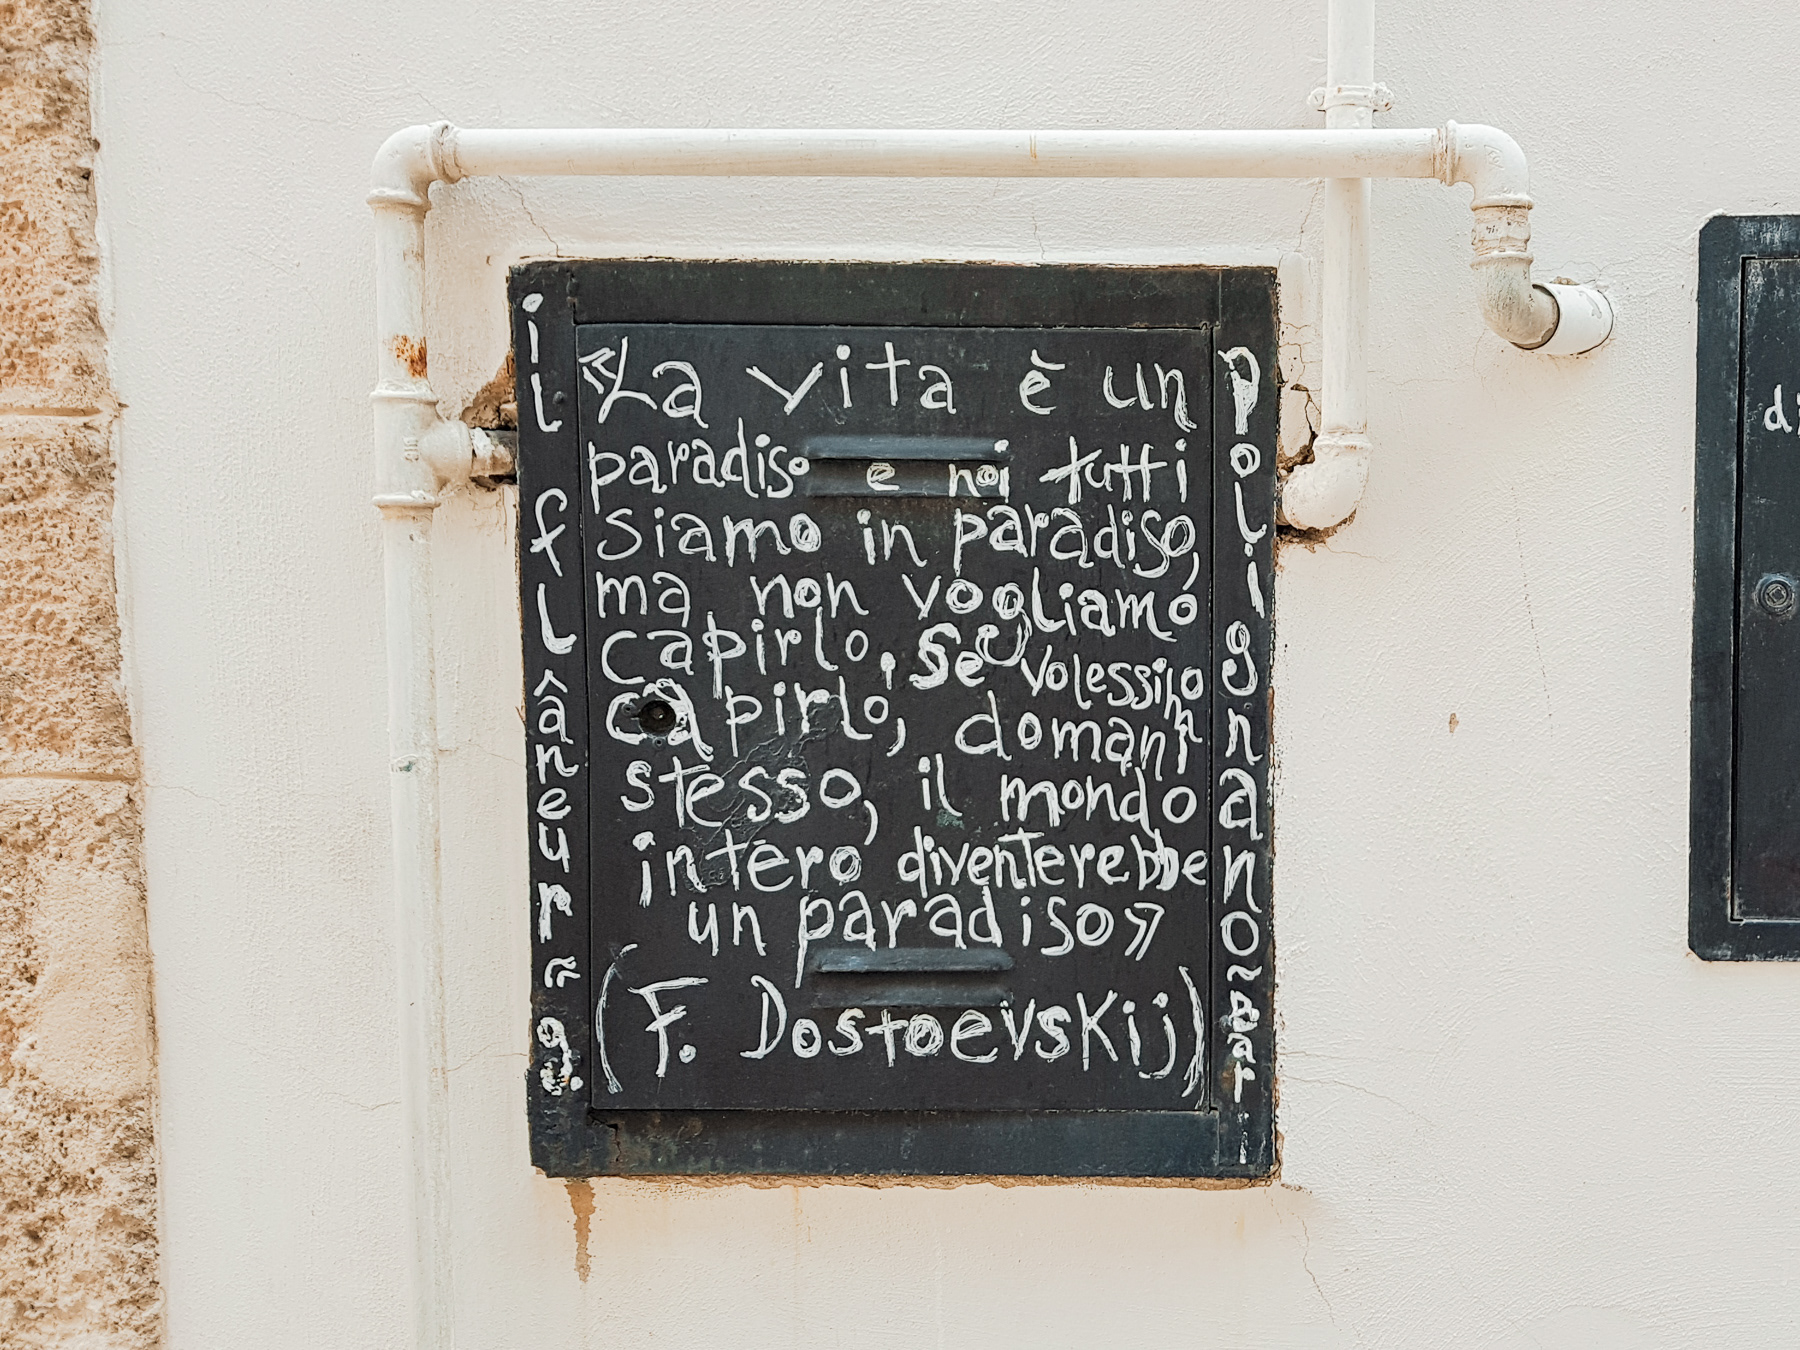 il flâneur ~
«La vita è un
paradiso e noi tutti
siamo in paradiso,
ma non vogliamo
capirlo, se volessimo
capirlo, domani
stesso, il mondo
intero diventerebbe
un paradiso»
(F. Dostoevskij)
Polignano ~ Bari
di